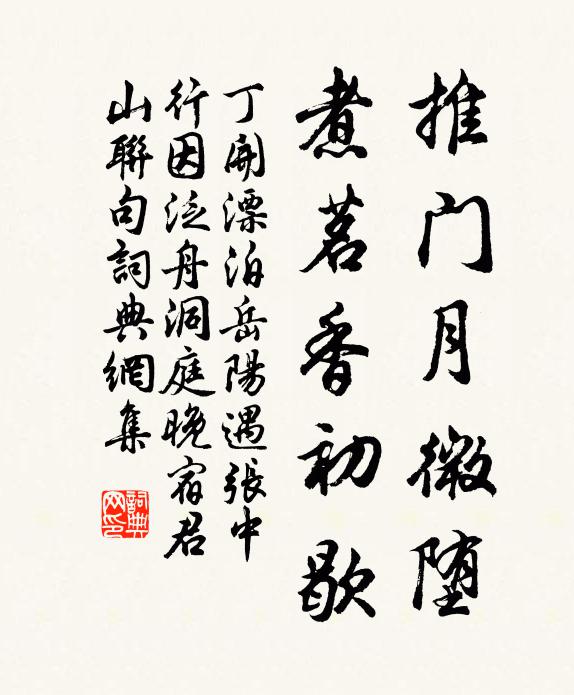 推门月微堕
煮茗香初歇
丁開漂泊岳陽遇張中
行因泛舟洞庭晚宿君
山聯句詞典網集
詞典
网印